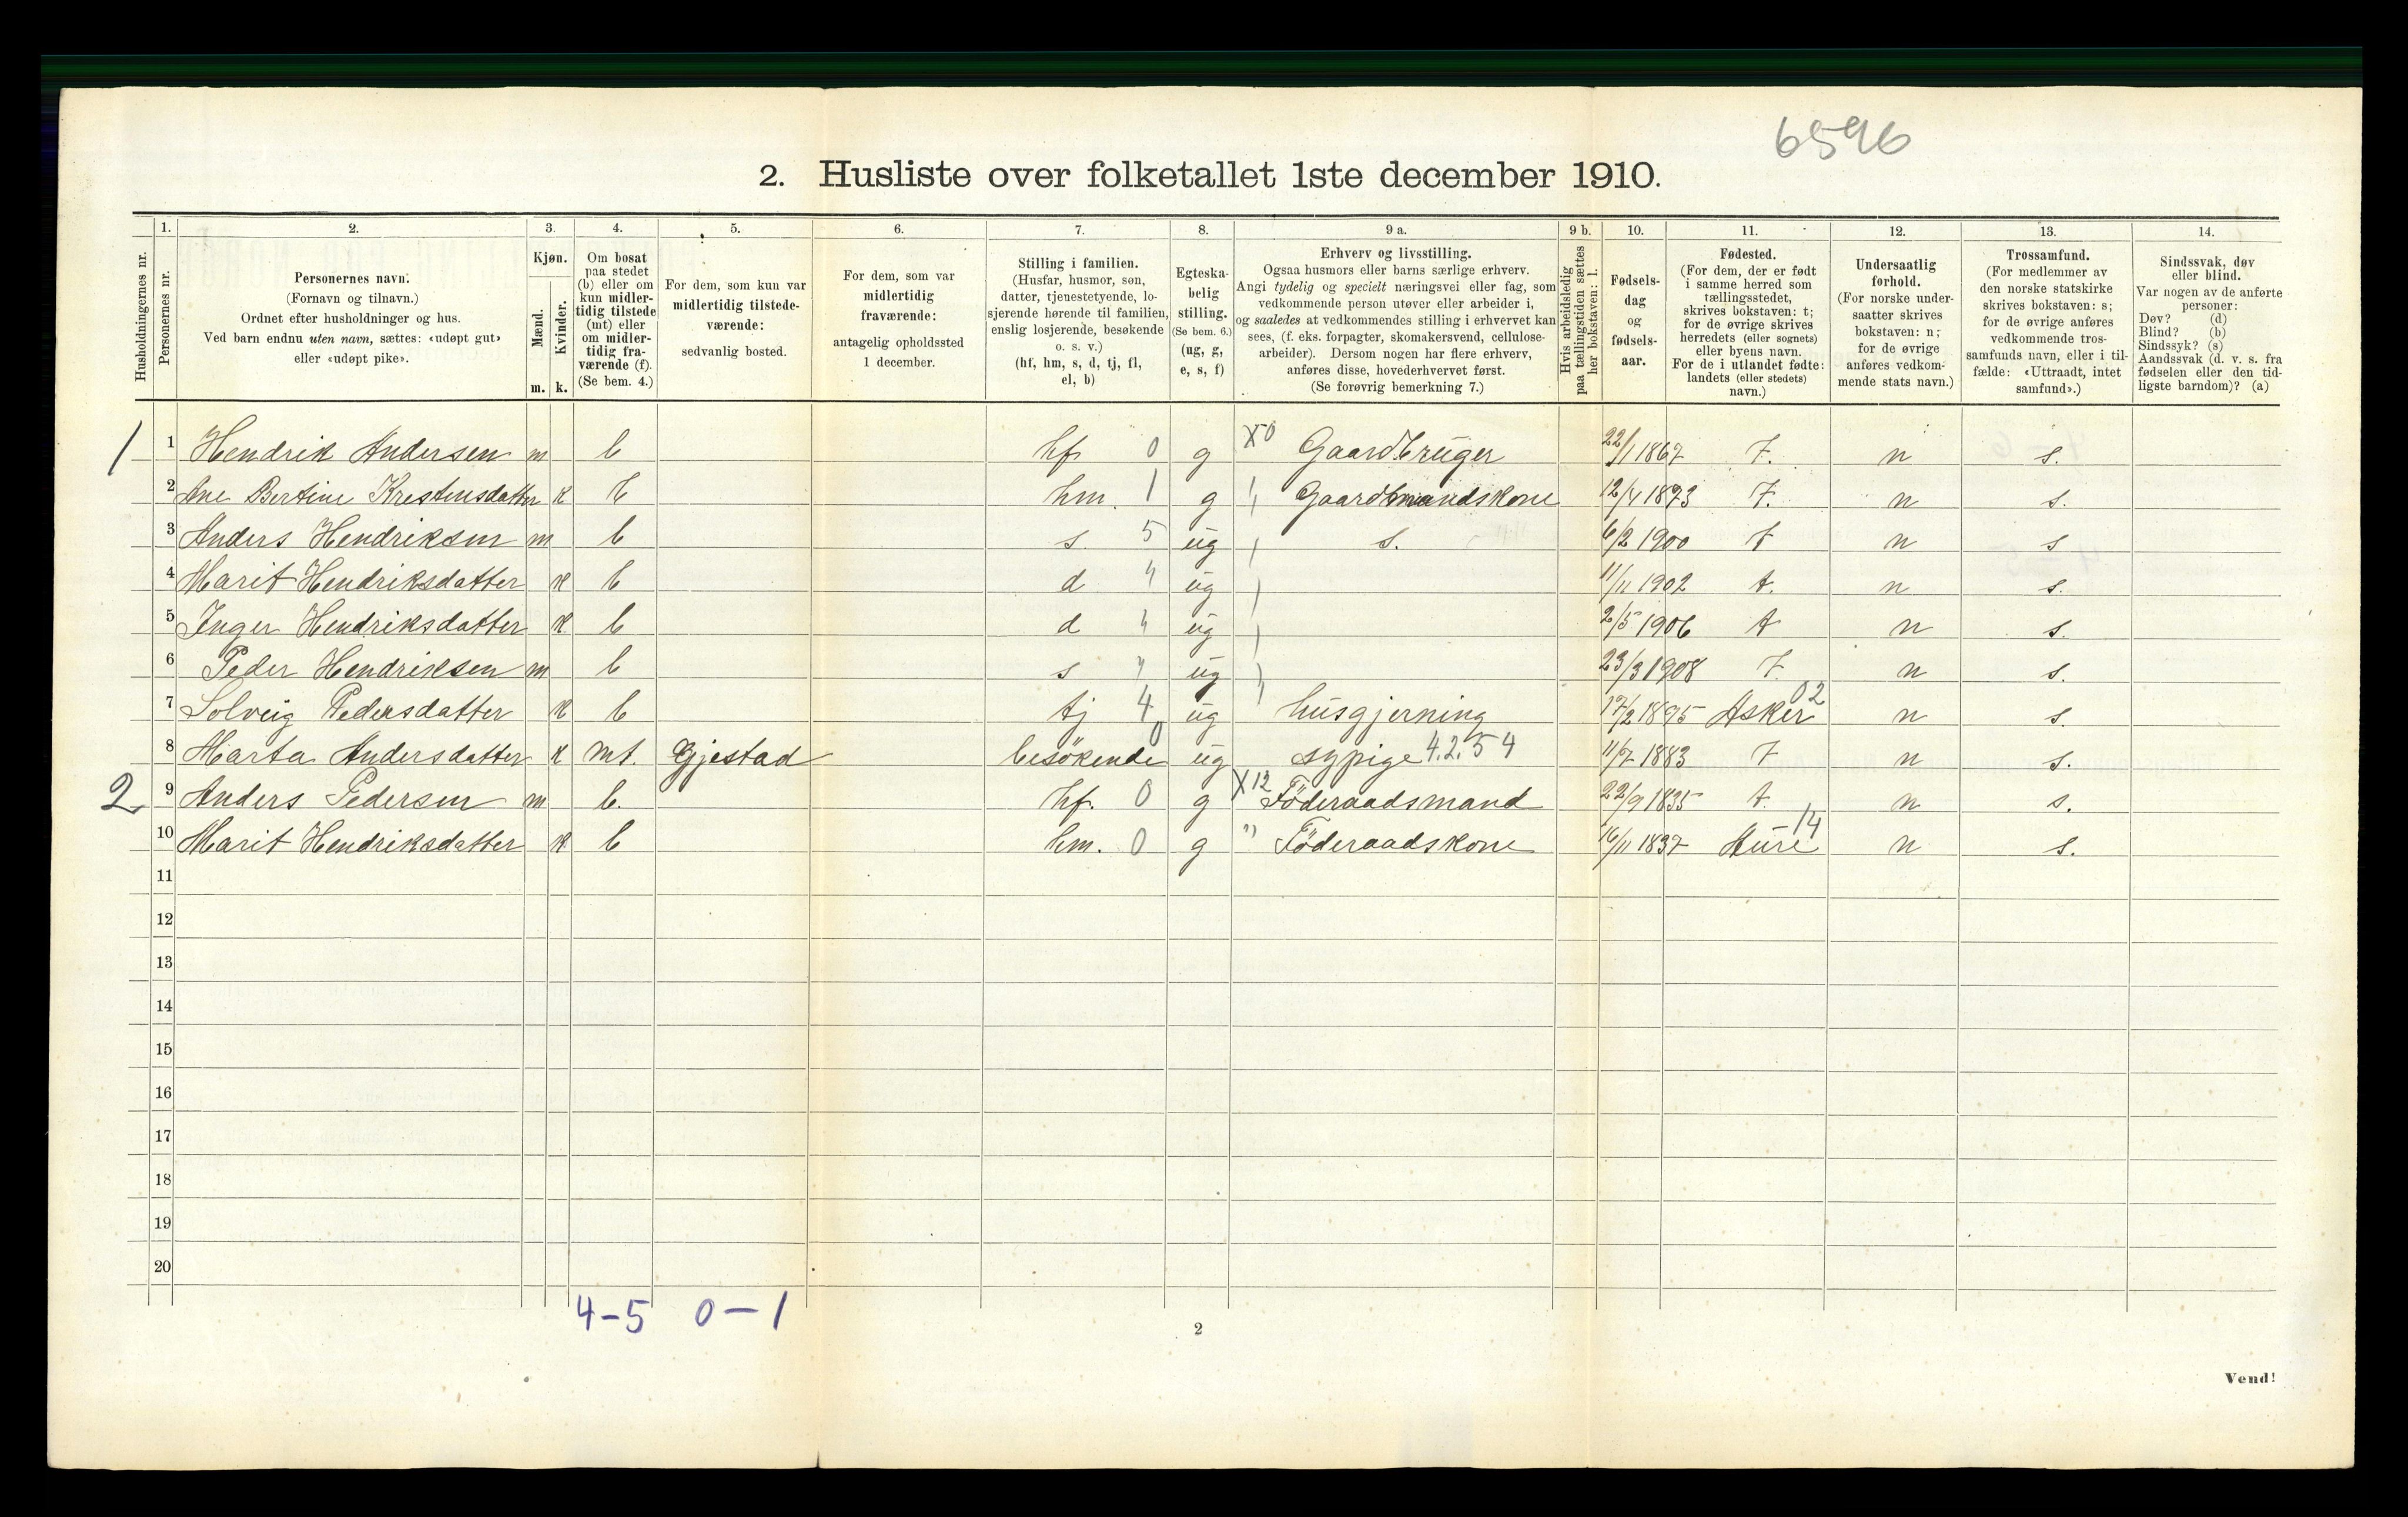 6596
2. Husliste over folketallet 1ste december 1910.
Husholdningernes nr.
1.
Personernes nr.
2.
Personernes navn.
(Fornavn og tilnavn.)
Ordnet efter husholdninger og hus.
Ved barn endnu uten navn, sættes: «udøpt gut»
eller «udøpt pike».
3.
Kjøn.
Mænd.
Kvinder.
m. k.
4.
Om bosat
paa stedet
(b) eller om
kun midler-
tidig tilstede
(mt) eller
om midler-
tidig fra-
værende (f).
(Se bem. 4.)
5.
For dem, som kun var
midlertidig tilstede-
værende:
sedvanlig bosted.
6.
For dem, som var
midlertidig
fraværende:
antagelig opholdssted
1 december.
7.
Stilling i familien.
(Husfar, husmor, søn,
datter, tjenestetyende, lo-
sjerende hørende til familien,
enslig losjerende, besøkende
o. s. v.)
(hf, hm, s, d, tj, fl,
el, b)
8.
Egteska-
belig
stilling.
(Se bem. 6.)
(ug, g,
e, s, f)
9 a.
Erhverv og livsstilling.
Ogsaa husmors eller barns særlige erhverv.
Angi tydelig og specielt næringsvei eller fag, som
vedkommende person utøver eller arbeider i,
og saaledes at vedkommendes stilling i erhvervet kan
sees, (f. eks. forpagter, skomakersvend, cellulose-
arbeider). Dersom nogen har flere erhverv,
anføres disse, hovederhvervet først.
(Se forøvrig bemerkning 7.)
9 b.
Hvis arbeidsledig
paa tællingstiden sættes
her bokstaven: l.
10.
Fødsels-
dag
og
fødsels-
aar.
11.
Fødested.
(For dem, der er født
i samme herred som
tællingsstedet,
skrives bokstaven: t;
for de øvrige skrives
herredets (eller sognets)
eller byens navn.
For de i utlandet fødte:
landets (eller stedets)
navn.)
12.
Undersaatlig
forhold.
(For norske under-
saatter skrives
bokstaven: n;
for de øvrige
anføres vedkom-
mende stats navn.)
13.
Trossamfund.
(For medlemmer av
den norske statskirke
skrives bokstaven: s;
for de øvrige anføres
vedkommende tros-
samfunds navn, eller i til-
fælde: «Uttraadt, intet
samfund».)
14.
Sindssvak, døv
eller blind.
Var nogen av de anførte
personer:
Døv? (d)
Blind? (b)
Sindssyk? (s)
Aandssvak (d. v. s. fra
fødselen eller den tid-
ligste barndom)? (a)
1 1 Hendrik Andersen m b hf 0 g X0 Gaardbruger 22/1 1867 t. n s.
2 Ane Bertine Kristensdatter k b hm. 1 g " Gaardmandskone 12/4 1873 t. n s.
3 Anders Hendriksen m b s 5 ug s. 6/2 1900 t n s
4 Marit Hendriksdatter k b d " ug 11/11 1902 t. n s.
5 Inger Hendriksdatter k b d " ug 2/5 1906 t n s.
6 Peder Hendriksen m b s " ug 23/3 1908 t n s.
7 Solveig Pedersdatter k b tj 4 ug husgjerning 17/2 1895 Asker 02 n s.
8 Marta Andersdatter k mt. Gjestad besökende 0 ug sypige 4.2.54 11/7 1883 t n s.
2 9 Anders Pedersen m b. hf. 0 g X12 Föderaadsmand 22/9 1835 t. n s.
10 Marit Hendriksdatter k b hm. 0 g " Föderaadskone 16/11 1837 Aure 14 n s.
11
12
13
14
15
16
17
18
19
20
4-5 0-1
2
Vend!